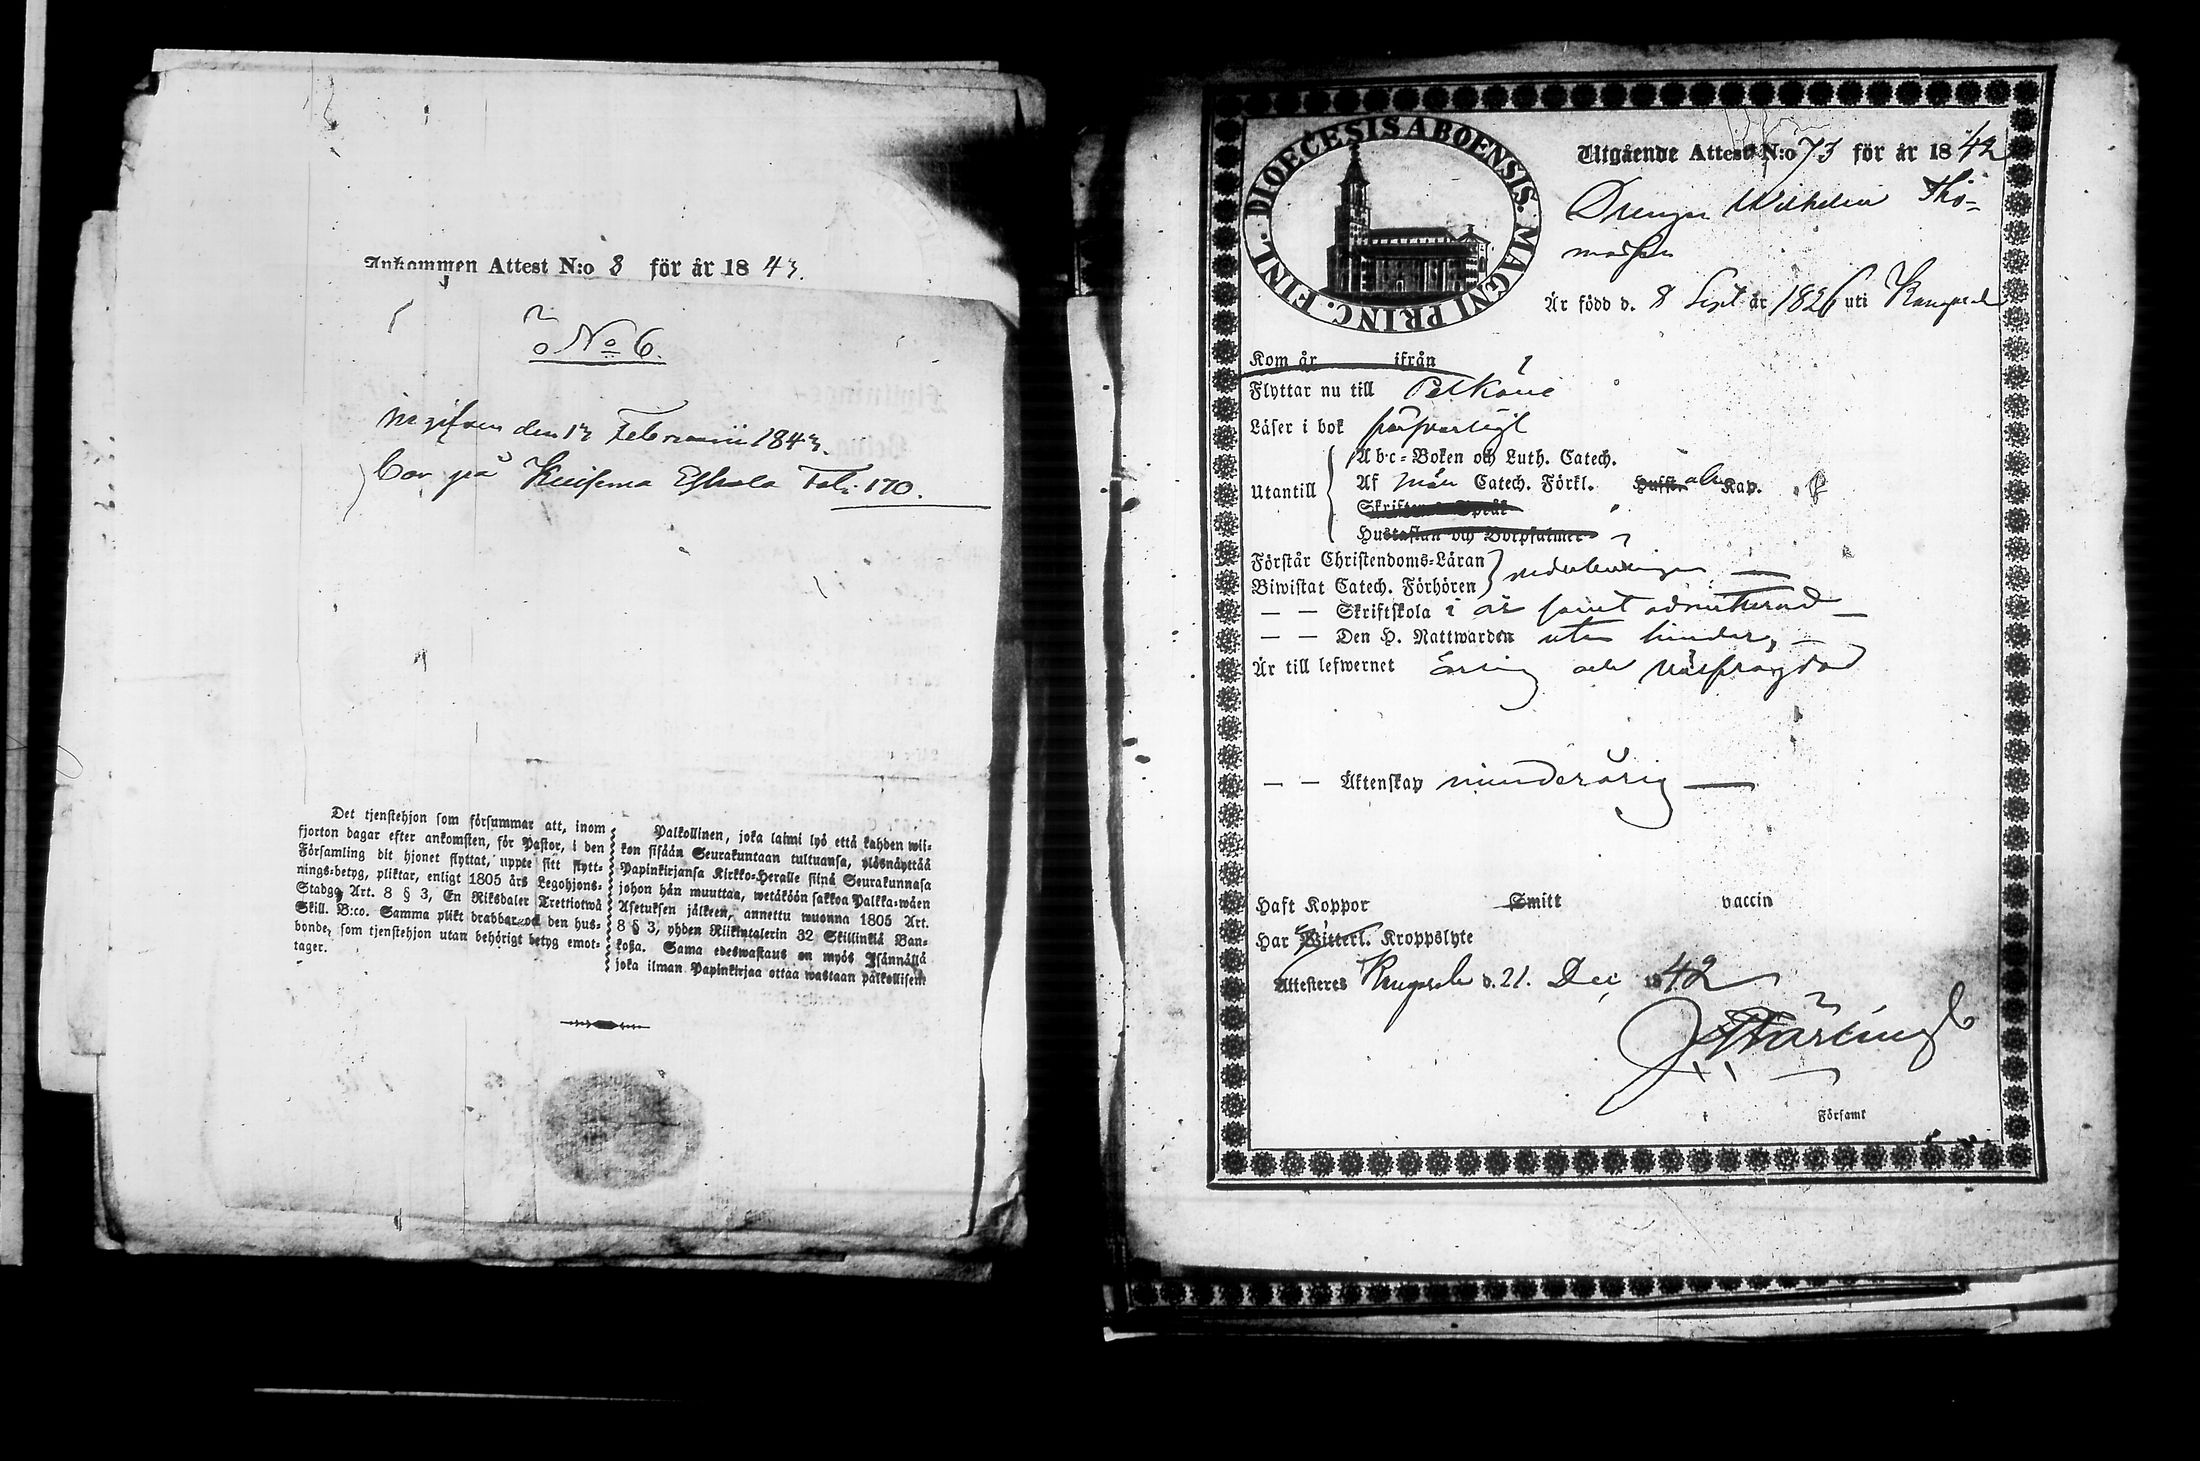 Ankommen Attest N:o 8 för år 1843.
No 6.
Ingifven den 13 Februarii 1843.
Bor på Kuisema Eskola Fol: 170.
Det tjenstehjon som försummar att, inom
fjorton dagar efter ankomsten, för Pastor, i den
Församling dit hjonet flyttat, uppte sitt flytt-
nings-betyg, pliktar, enligt 1805 års Legohjons-
Stadga Art. 8 § 3, En Riksdaler Trettiotwå
Skill. B:co. Samma plikt drabbar ock den hus-
bonde, som tjenstehjon utan behörigt betyg emot-
tager.
Palkollinen, joka laimi lyö että kahden wii-
kon sisään Seurakuntaan tultuansa, ylösnäyttää
Papinkirjansa Kirkko-Herralle siinä Seurakunnasa
johon hän muuttaa, wetäköön sakkoa Palkka-wäen
Asetuksen jälkeen, annettu wuonna 1805 Art.
8 § 3, yhden Riikintalerin 32 Skillinkiä Ban-
kosa. Sama edeswastaus on myös Isännällä
joka ilman Papinkirjaa ottaa wastaan palkollisen
DIOECESIS ABOENSIS. MAGNI PRINC. FINL.
Utgående Attest N:o 73 för år 1842
Drengen Wilhelm Tho-
masson
Är född d. 8 Sept år 1826 uti Kangasala
Kom år ifrån
Flyttar nu till Pelkäne
Läser i bok försvarligt
Utantill
Abc-Boken och Luth. Catech.
Af Catech. Förkl. Hufst. Kap.
Skriftens Språk
Hustaflan och Botpsalmer
Förstår Christendoms-Läran
Biwistat Catech. Förhören
— — Skriftskola i år samt admitterad —
— — Den H. Nattwarden utan hinder, —
Är till lefwernet ärlig och välfrägdad
— — Äktenskap minderårig —
Haft Koppor Smitt vaccin
Har Witterl. Kroppslyte
Attesteras Kangasala d. 21. Dec 1842
Församl